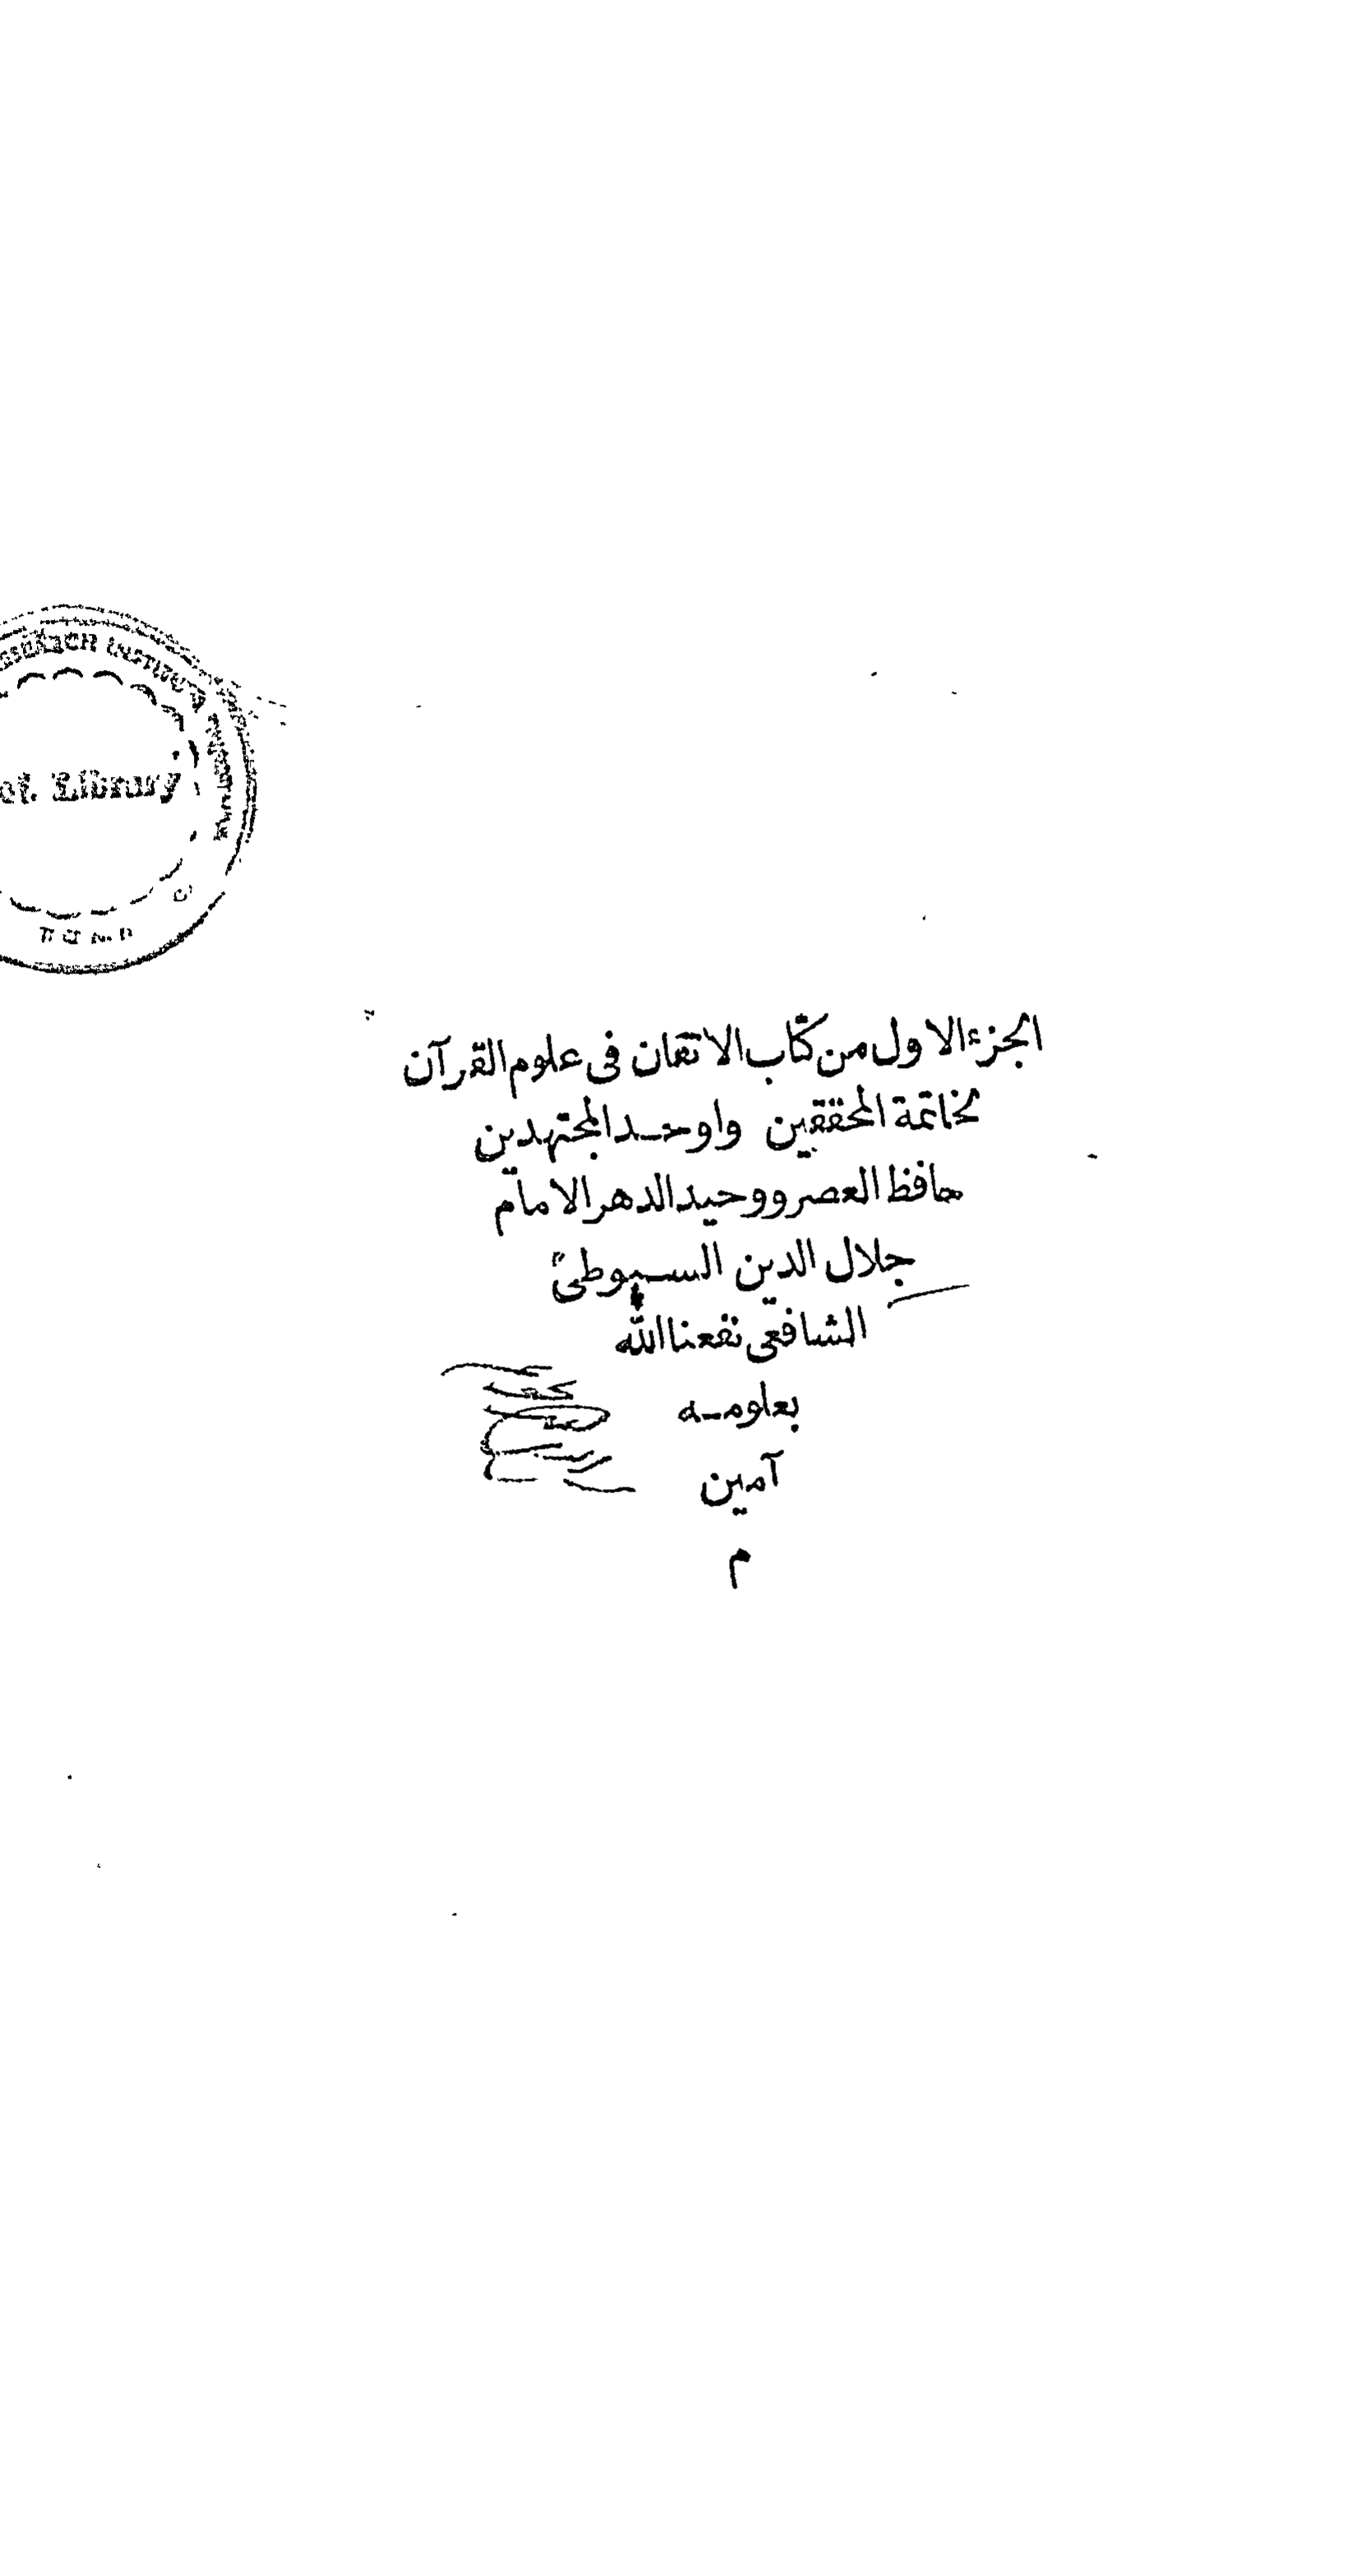 RESEARCH INSTITUTE
ct. Library
الجزء الاول من كتاب الاتقان فى علوم القرآن
لخاتمة المحققين واوحد المجتهدين
حافظ العصر ووحيد الدهر الامام
جلال الدين السيوطى
الشافعى نفعنا الله
بعلومه
آمين
م